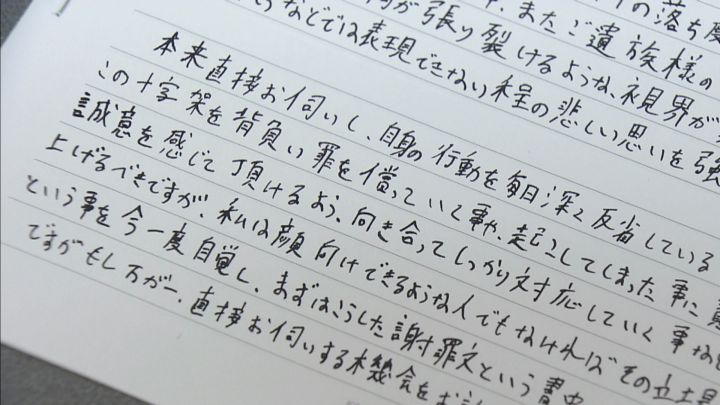 の落ち度
が張り裂けるような、視界が
などでは表現できない程の悲しい思いを強
、またご遺族様の
本来直接お伺いし、自身の行動を毎日深く反省している
この十字架を背負い罪を償っていく事や、起こしてしまった事に真
誠意を感じて頂けるよう、向き合ってしっかり対応していく事な
上げるべきですが、私は顔向けできるような人でもなければその立場
という事を今一度自覚し、まずはこうした謝罪文という書
ですがもし万が一、直接お伺いする機会をお